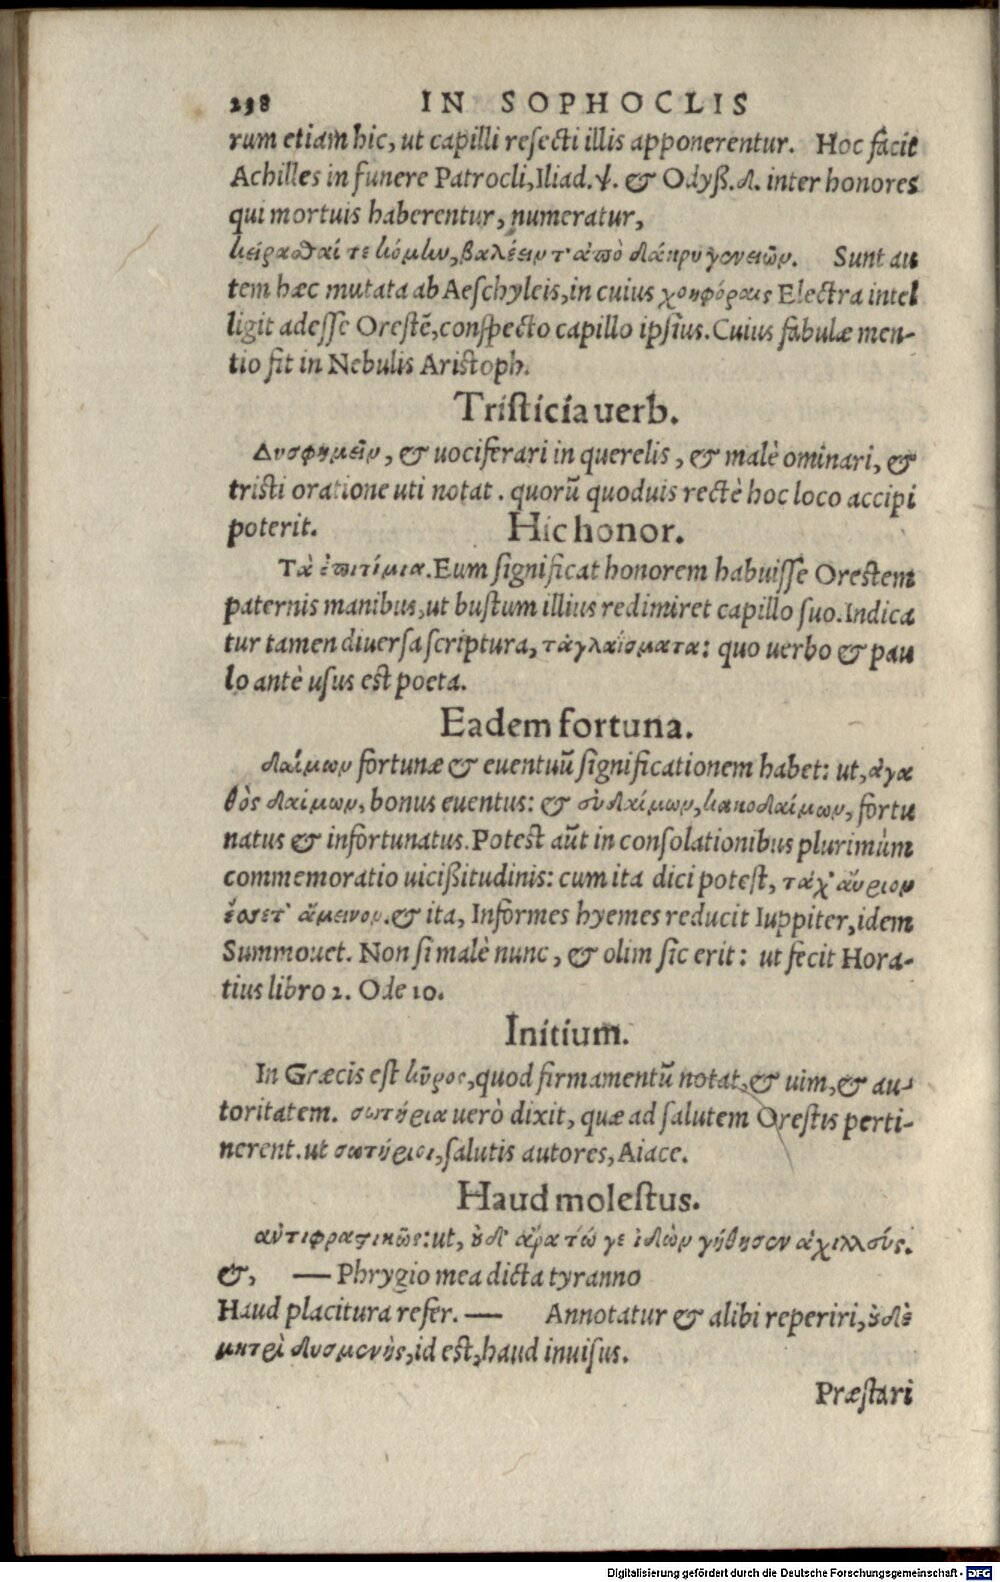 238 IN SOPHOCLIS
rum etiam hic, ut capilli resecti illis apponerentur. Hoc facit
Achilles in funere Patrocli, Iliad. ψ. & Odyß. δ. inter honores
qui mortuis haberentur, numeratur,
κείραϑαί τε κόμlω, βαλέειν τ' ἀπὸ δάκρυ γονειῶν. Sunt au
tem hæc mutata ab Aeschyleis, in cuius χοηφόραις Electra intel
ligit adesse Orestē, conspecto capillo ipsius. Cuius fabulæ men-
tio fit in Nebulis Aristoph.
Tristicia uerb.
Δυσφημεῖν, & uociferari in querelis, & malè ominari, &
tristi oratione uti notat. quorū quoduis rectè hoc loco accipi
poterit. Hic honor.
Τὰ ἐπιτίμια. Eum significat honorem habuisse Orestem
paternis manibus, ut bustum illius redimiret capillo suo. Indica
tur tamen diuersa scriptura, τἀγλαΐσματα: quo uerbo & pau
lo antè usus est poeta.
Eadem fortuna.
δαίμων fortunæ & euentuū significationem habet: ut, ἀγα
θὸς δαίμων, bonus euentus: & ἐυδαίμων, κακοδαίμων, fortu
natus & infortunatus. Potest aūt in consolationibus plurimùm
commemoratio uicißitudinis: cum ita dici potest, τάχ' ἄυριον
ἔσσετ' ἄμεινον. & ita, Informes hyemes reducit Iuppiter, idem
Summouet. Non si malè nunc, & olim sic erit: ut fecit Hora-
tius libro 2. Ode 10.
Initium.
In Græcis est κῦρος, quod firmamentū notat, & uim, & au-
toritatem. σωτήρια uerò dixit, quæ ad salutem Orestis perti-
nerent. ut σωτήριοι, salutis autores, Aiace.
Haud molestus.
αὐτιφραστικῶς: ut, ȣδ' ἄρα τώ γε ἰδὼν γήθησεν ἀχιλλεύς.
&, — Phrygio mea dicta tyranno
Haud placitura refer. — Annotatur & alibi reperiri, ȣδὲ
μητρὶ δυσμενὴς, id est, haud inuisus.
Præstari
Digitalisierung gefördert durch die Deutsche Forschungsgemeinschaft - DFG